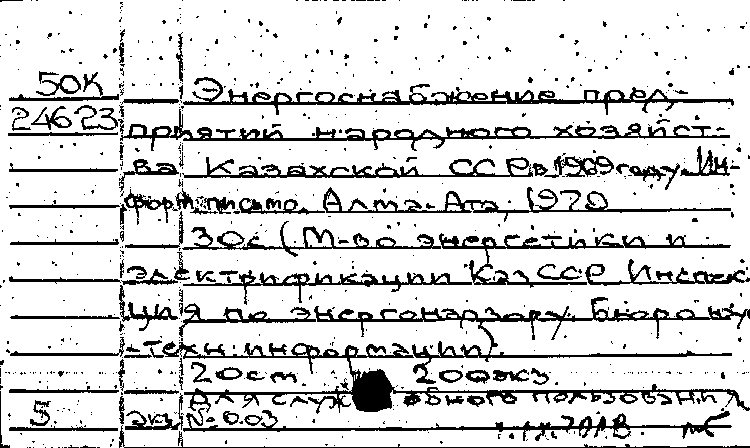 50К Энергоснабжение пред-
24623 приятий народного хозяйст-
ва Казахской ССР в 1969 году. Ин-
форм. письмо. Алма-Ата, 1970
30с (М-во энергетики и
электрификации Каз.ССР Инспек
ция по энергонадзору. Бюро
-техн. информации).
20ст. 200экз.
Для служебного пользования
5 экз. № 003.